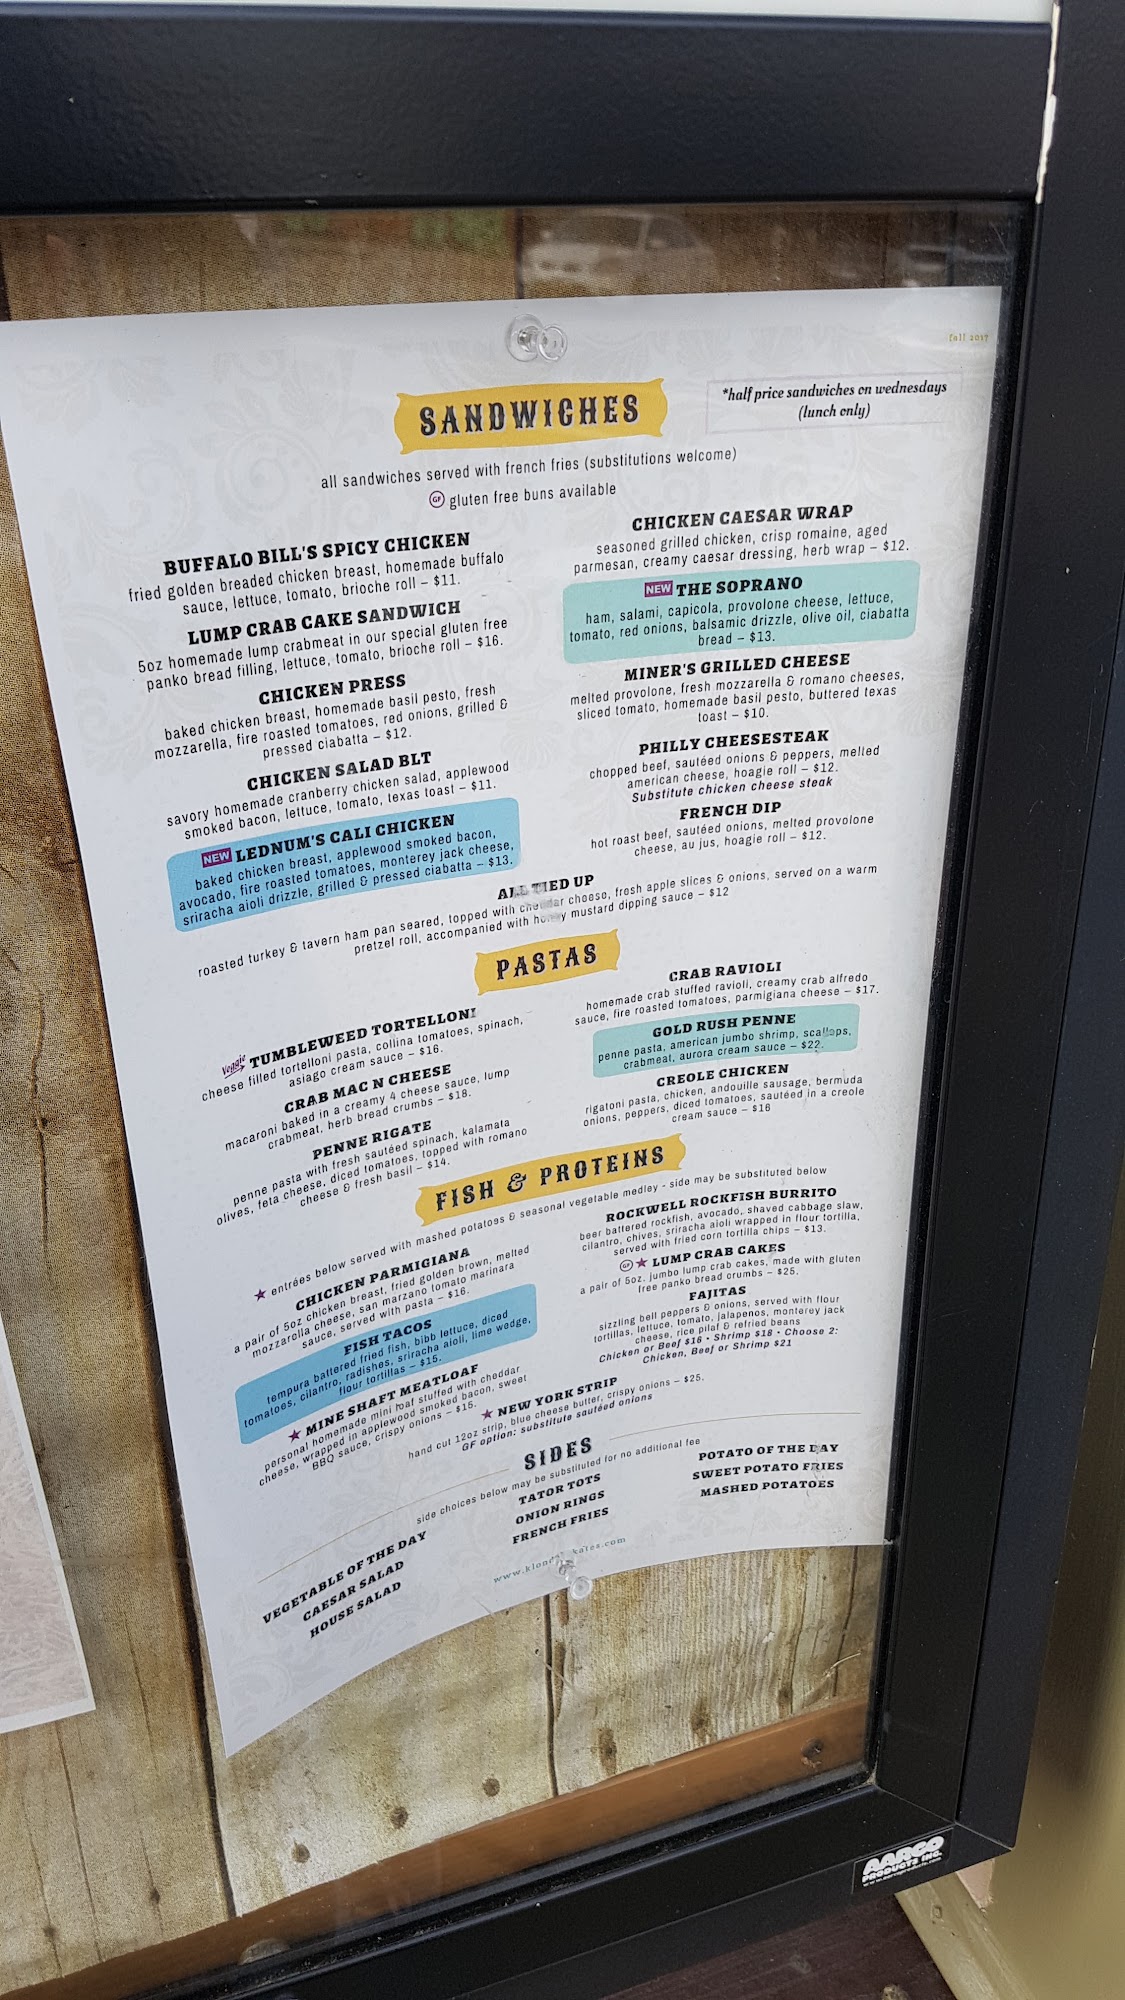 fall 2017
SANDWICHES
*half price sandwiches on wednesdays
(lunch only)
all sandwiches served with french fries (substitutions welcome)
GF gluten free buns available
BUFFALO BILL'S SPICY CHICKEN
fried golden breaded chicken breast, homemade buffalo
sauce, lettuce, tomato, brioche roll – $11.
LUMP CRAB CAKE SANDWICH
5oz homemade lump crabmeat in our special gluten free
panko bread filling, lettuce, tomato, brioche roll – $16.
CHICKEN PRESS
baked chicken breast, homemade basil pesto, fresh
mozzarella, fire roasted tomatoes, red onions, grilled &
pressed ciabatta – $12.
CHICKEN SALAD BLT
savory homemade cranberry chicken salad, applewood
smoked bacon, lettuce, tomato, texas toast – $11.
NEW LEDNUM'S CALI CHICKEN
baked chicken breast, applewood smoked bacon,
avocado, fire roasted tomatoes, monterey jack cheese,
sriracha aioli drizzle, grilled & pressed ciabatta – $13.
CHICKEN CAESAR WRAP
seasoned grilled chicken, crisp romaine, aged
parmesan, creamy caesar dressing, herb wrap – $12.
NEW THE SOPRANO
ham, salami, capicola, provolone cheese, lettuce,
tomato, red onions, balsamic drizzle, olive oil, ciabatta
bread – $13.
MINER'S GRILLED CHEESE
melted provolone, fresh mozzarella & romano cheeses,
sliced tomato, homemade basil pesto, buttered texas
toast – $10.
PHILLY CHEESESTEAK
chopped beef, sautéed onions & peppers, melted
american cheese, hoagie roll – $12.
Substitute chicken cheese steak
FRENCH DIP
hot roast beef, sautéed onions, melted provolone
cheese, au jus, hoagie roll – $12.
ALL TIED UP
roasted turkey & tavern ham pan seared, topped with cheddar cheese, fresh apple slices & onions, served on a warm
pretzel roll, accompanied with honey mustard dipping sauce – $12
PASTAS
Veggie TUMBLEWEED TORTELLONI
cheese filled tortelloni pasta, collina tomatoes, spinach,
asiago cream sauce – $16.
CRAB MAC N CHEESE
macaroni baked in a creamy 4 cheese sauce, lump
crabmeat, herb bread crumbs – $18.
PENNE RIGATE
penne pasta with fresh sautéed spinach, kalamata
olives, feta cheese, diced tomatoes, topped with romano
cheese & fresh basil – $14.
CRAB RAVIOLI
homemade crab stuffed ravioli, creamy crab alfredo
sauce, fire roasted tomatoes, parmigiana cheese – $17.
GOLD RUSH PENNE
penne pasta, american jumbo shrimp, scallops,
crabmeat, aurora cream sauce – $22.
CREOLE CHICKEN
rigatoni pasta, chicken, andouille sausage, bermuda
onions, peppers, diced tomatoes, sautéed in a creole
cream sauce – $16
FISH & PROTEINS
★ entrées below served with mashed potatoes & seasonal vegetable medley - side may be substituted below
CHICKEN PARMIGIANA
a pair of 5oz chicken breast, fried golden brown, melted
mozzarolla cheese, san marzano tomato marinara
sauce, served with pasta – $16.
FISH TACOS
tempura battered fried fish, bibb lettuce, diced
tomatoes, cilantro, radishes, sriracha aioli, lime wedge,
flour tortillas – $15.
★ MINE SHAFT MEATLOAF
personal homemade mini loaf stuffed with cheddar
cheese, wrapped in applewood smoked bacon, sweet
BBQ sauce, crispy onions – $15.
ROCKWELL ROCKFISH BURRITO
beer battered rockfish, avocado, shaved cabbage slaw,
cilantro, chives, sriracha aioli wrapped in flour tortilla,
served with fried corn tortilla chips – $13.
GF ★ LUMP CRAB CAKES
a pair of 5oz. jumbo lump crab cakes, made with gluten
free panko bread crumbs – $25.
FAJITAS
sizzling bell peppers & onions, served with flour
tortillas, lettuce, tomato, jalapenos, monterey jack
cheese, rice pilaf & refried beans
Chicken or Beef $16 • Shrimp $18 • Choose 2:
Chicken, Beef or Shrimp $21
★ NEW YORK STRIP
hand cut 12oz strip, blue cheese butter, crispy onions – $25.
GF option: substitute sautéed onions
SIDES
side choices below may be substituted for no additional fee
VEGETABLE OF THE DAY
CAESAR SALAD
HOUSE SALAD
TATOR TOTS
ONION RINGS
FRENCH FRIES
POTATO OF THE DAY
SWEET POTATO FRIES
MASHED POTATOES
www.klondikekates.com
AARCO
PRODUCTS INC.